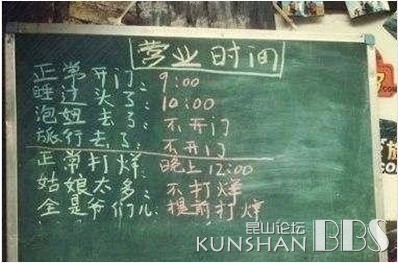 营业时间
正常开门：9:00
睡过头了：10:00
泡妞去了：不开门
旅行去了：不开门
正常打烊：晚上12:00
姑娘太多：不打烊
全是爷们儿：提前打烊
昆山论坛
KUNSHAN BBS